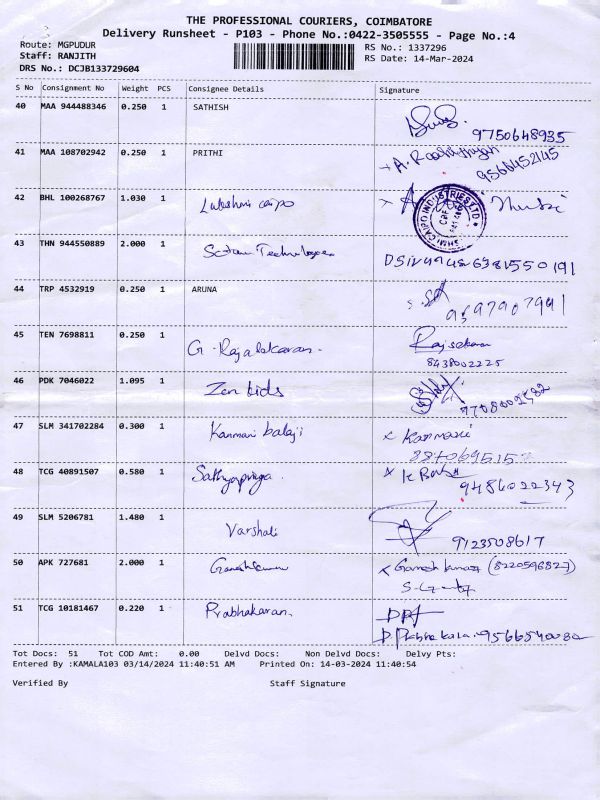 THE PROFESSIONAL COURIERS, COIMBATORE
Delivery Runsheet - P103 - Phone No.:0422-3505555 - Page No.:4
Route: MGPUDUR RS No.: 1337296
Staff: RANJITH RS Date: 14-Mar-2024
DRS No.: DCJB133729604
S No Consignment No Weight PCS Consignee Details Signature
40 MAA 944488346 0.250 1 SATHISH
9750648935
41 MAA 108702942 0.250 1 PRITHI
9566452145
42 BHL 100268767 1.030 1 Lakshmi caipo
43 THN 944550889 2.000 1
6381550191
44 TRP 4532919 0.250 1 ARUNA
9597907991
45 TEN 7698811 0.250 1 G. Rajasekaran. Rajsekaran
8438002225
46 PDK 7046022 1.095 1 Zen kids
47 SLM 341702284 0.300 1 Kanmani balaji Kanmani
48 TCG 40891507 0.580 1 Sathyapriya.
9486022343
49 SLM 5206781 1.480 1 Varshali
9123508617
50 APK 727681 2.000 1 Ganeshkumar Ganesh kumar (8220596827)
51 TCG 10181467 0.220 1 Prabhakaran.
D. Prabhakaran. 9566540082
Tot Docs: 51 Tot COD Amt: 0.00 Delvd Docs: Non Delvd Docs: Delvy Pts:
Entered By :KAMALA103 03/14/2024 11:40:51 AM Printed On: 14-03-2024 11:40:54
Verified By Staff Signature